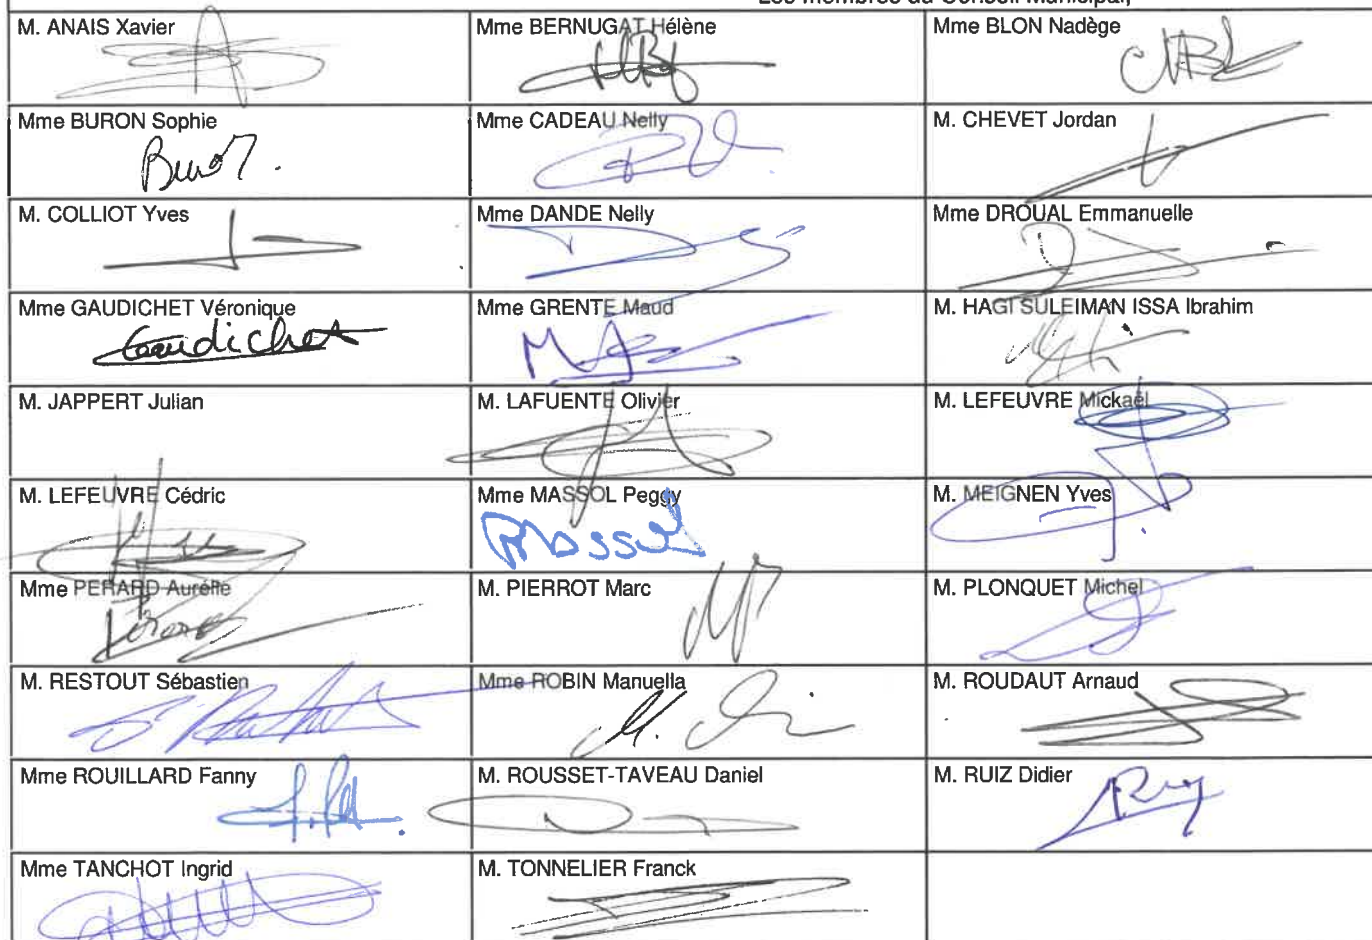 Les membres du Conseil Municipal,
M. ANAIS Xavier
Mme BERNUGAT Hélène
Mme BLON Nadège
Mme BURON Sophie
Mme CADEAU Nelly
M. CHEVET Jordan
M. COLLIOT Yves
Mme DANDE Nelly
Mme DROUAL Emmanuelle
Mme GAUDICHET Véronique
Gaudichet
Mme GRENTE Maud
M. HAGI SULEIMAN ISSA Ibrahim
M. JAPPERT Julian
M. LAFUENTE Olivier
M. LEFEUVRE Mickaël
M. LEFEUVRE Cédric
Mme MASSOL Peggy
Massol
M. MEIGNEN Yves
Mme PERARD Aurélie
M. PIERROT Marc
M. PLONQUET Michel
M. RESTOUT Sébastien
Mme ROBIN Manuella
M. ROUDAUT Arnaud
Mme ROUILLARD Fanny
M. ROUSSET-TAVEAU Daniel
M. RUIZ Didier
Mme TANCHOT Ingrid
M. TONNELIER Franck